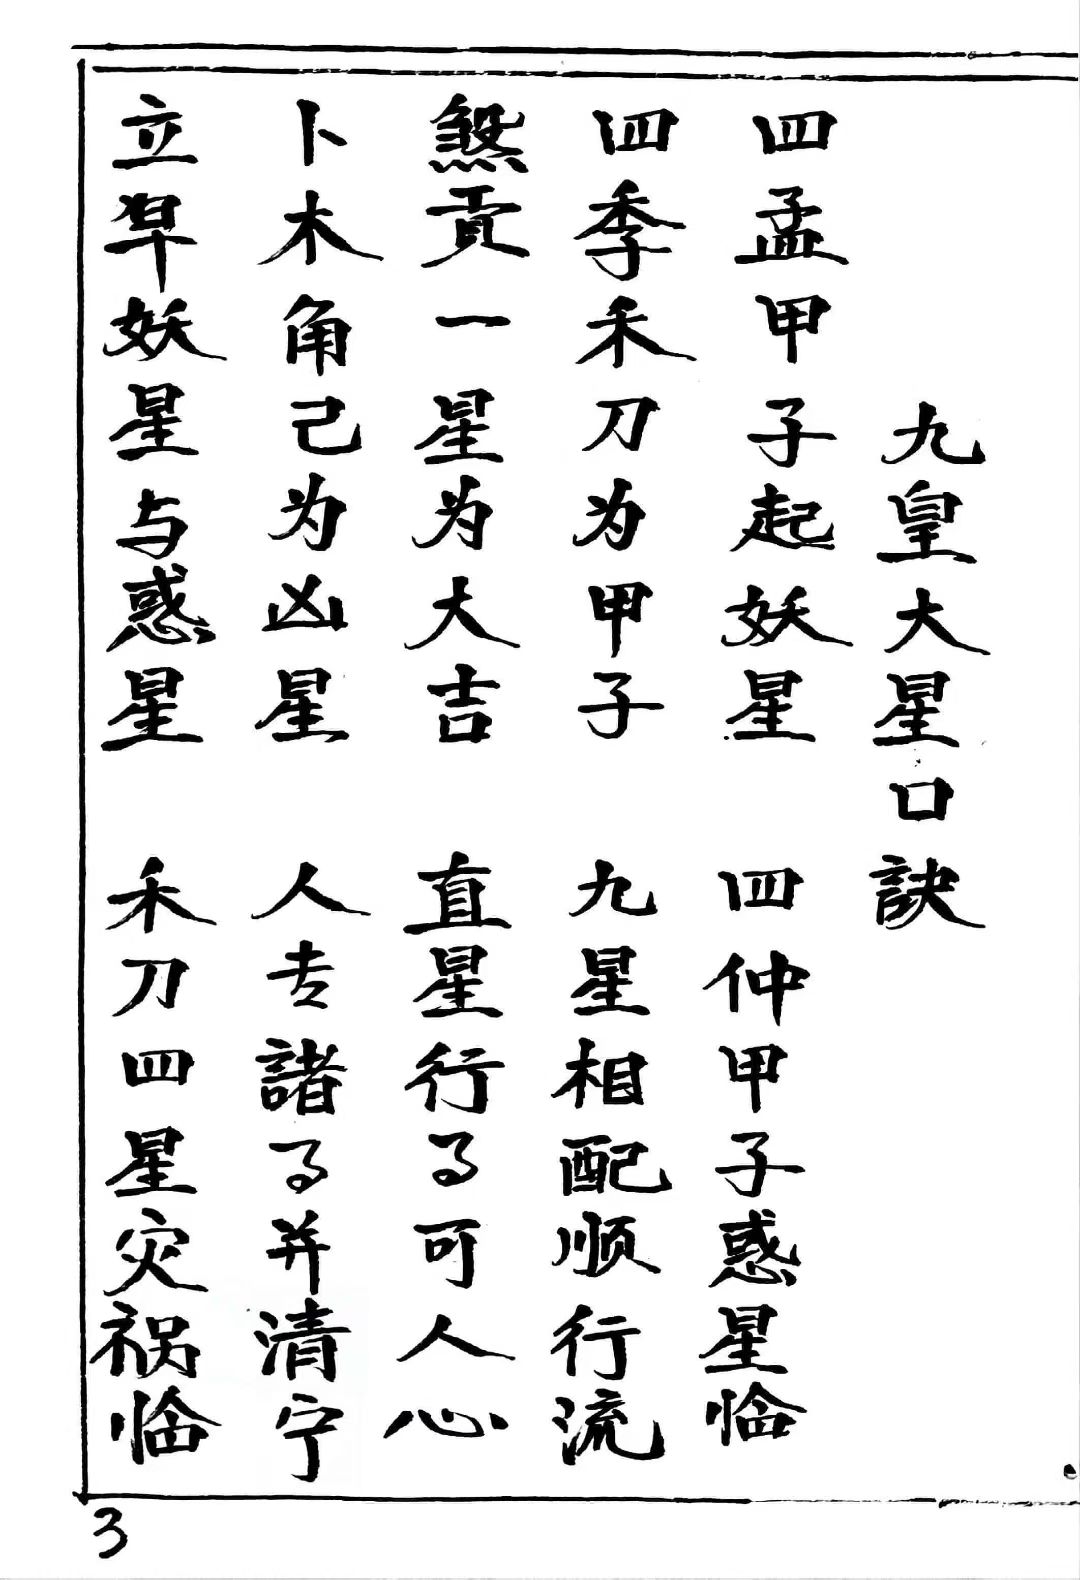 九皇大星口訣
四孟甲子起妖星 四仲甲子惑星临
四季禾刀为甲子 九星相配顺行流
煞贡一星为大吉 直星行る可人心
卜木角己为凶星 人专諸る并清宁
立早妖星与惑星 禾刀四星灾祸临
3